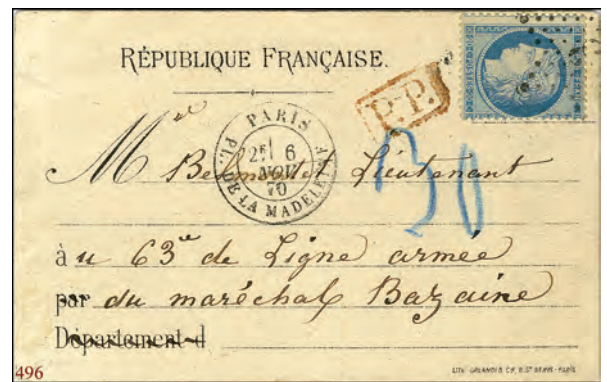 RÉPUBLIQUE FRANÇAISE.
P.P.
PARIS
2E 6
NOV
70
PL. DE LA MADELEINE
Mr Belmontet Lieutenant
30
à u 63e de Ligne armée
par du maréchal Bazaine
Département d
496